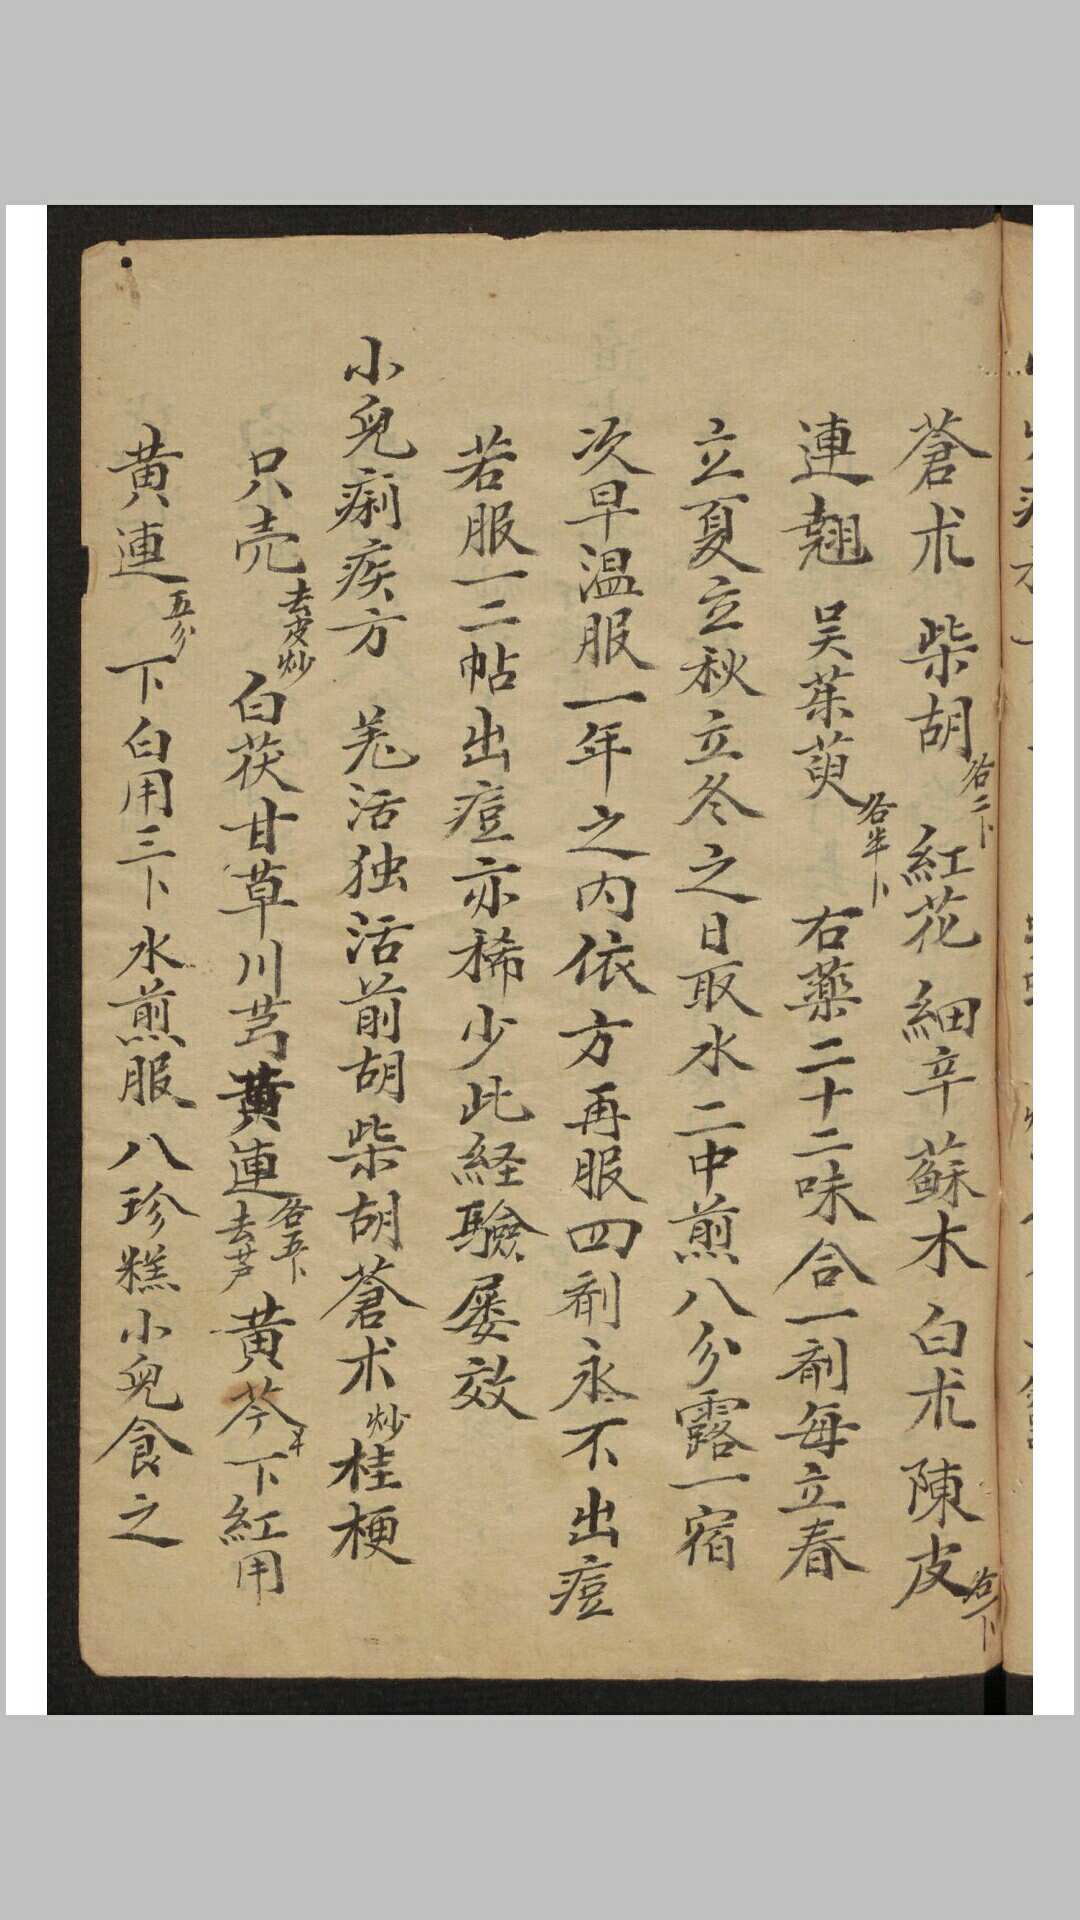 蒼朮 柴胡各二卜 紅花 細辛 蘇木 白朮 陳皮各一卜
連翹 吴茱萸各半卜 右藥二十二味合一剤每立春
立夏立秋立冬之日取水二中煎八分露一宿
次早温服一年之内依方再服四剤永不出痘
若服一二帖出痘亦稀少此経驗屡效
小兒痢疾方 羌活独活前胡柴胡蒼朮炒桂梗
只壳去皮炒 白茯甘草川芎黄連各五卜去芦黄芩下紅用
黄連五分下白用三卜水煎服 八珍糕小兒食之